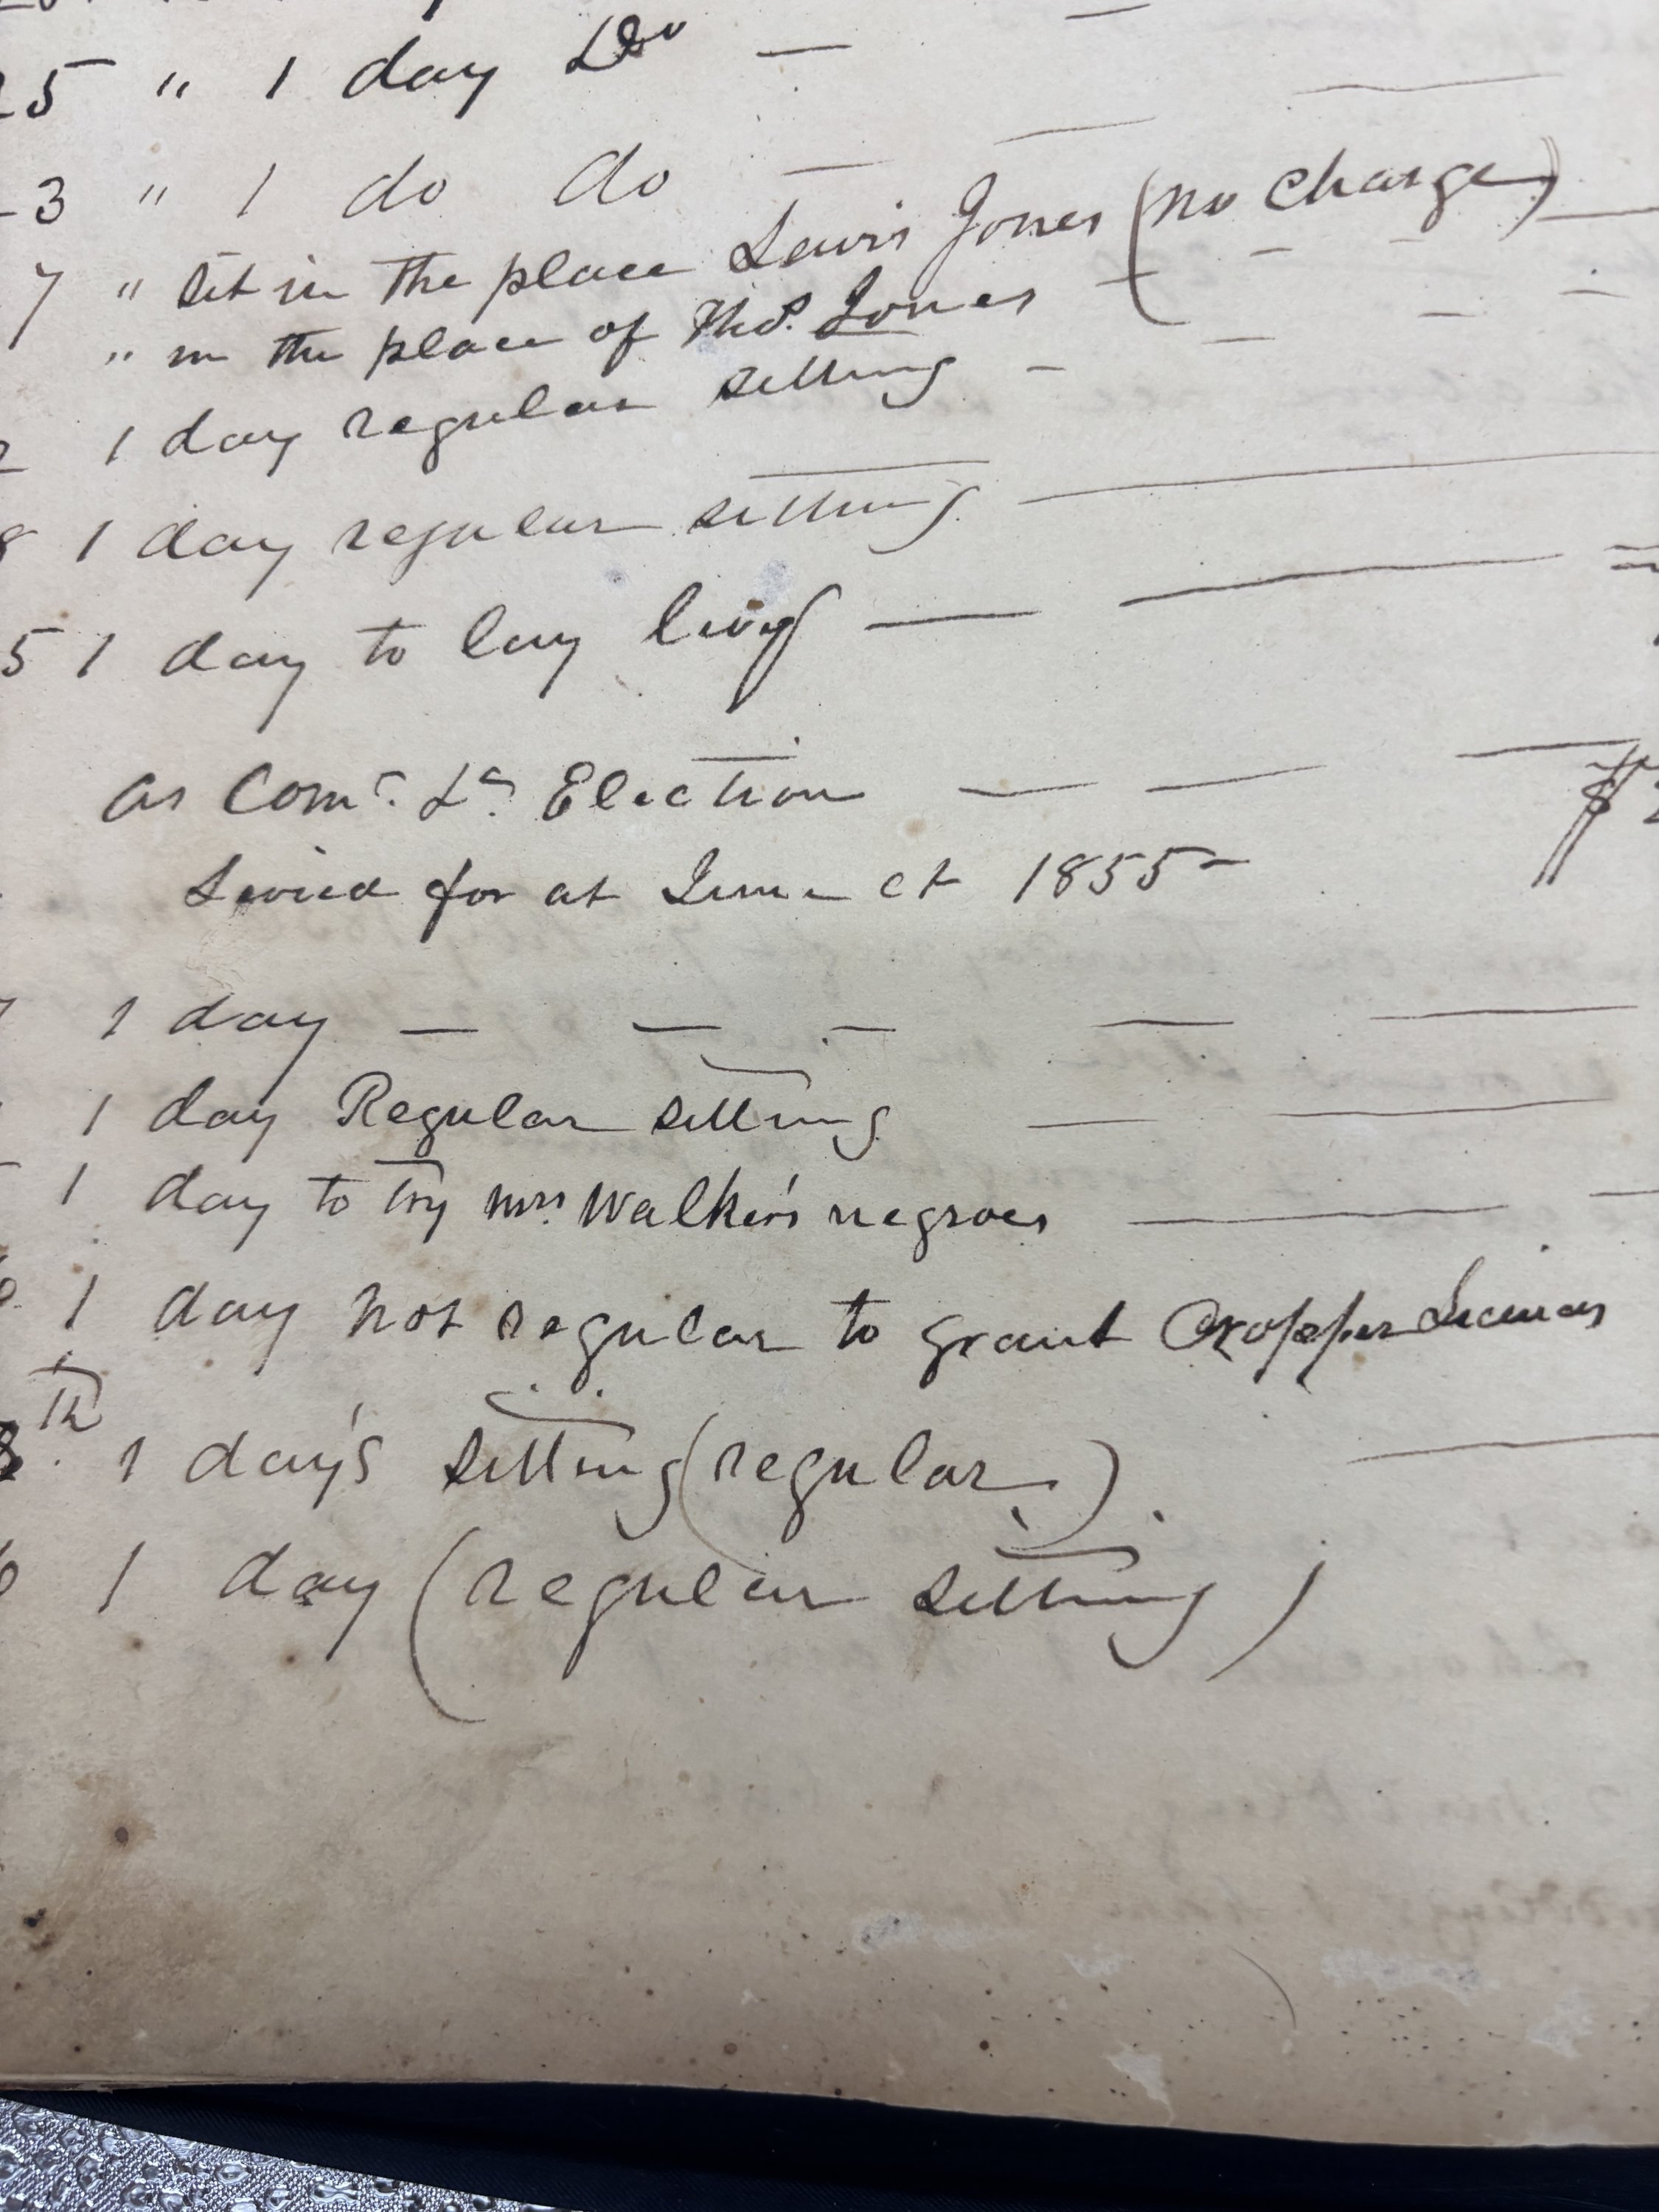 25 " 1 day Do —
3 " 1 do do —
7 " Sit in the place Lewis Jones (no charge)
" in the place of Thos. Jones
1 day regular sitting -
8 1 day regular sitting
5 1 day to lay levy
as Comr. Election
Levied for at June ct 1855
1 day
1 day Regular sitting
1 day to try Mrs. Walker's negroes
1 day not regular to grant Cropper License
8th 1 day's sitting (regular).
6 1 day (regular sitting)